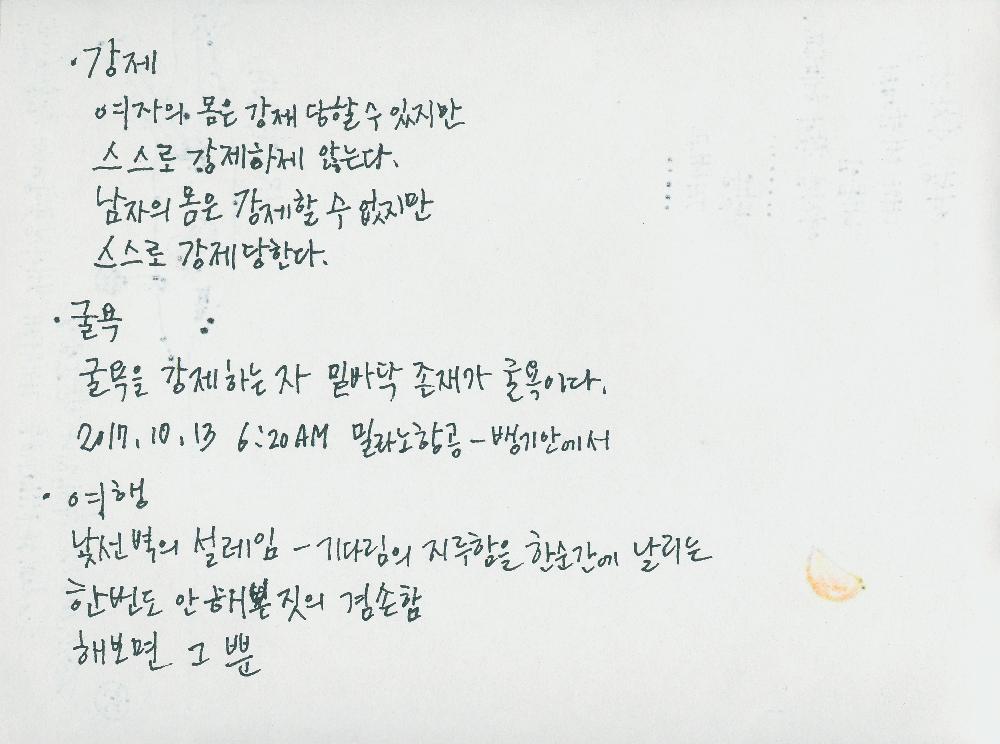 · 강제
여자의 몸은 강제 당할 수 있지만
스스로 강제하제 않는다.
남자의 몸은 강제할 수 없지만
스스로 강제당한다.
· 굴욕
굴욕을 강제하는 자 밑바닥 존재가 굴욕이다.
2017.10.13 6:20AM 밀라노항공 - 뱅기안에서
· 여행
낯선 벽의 설레임 - 기다림의 지루함을 한순간에 날리는
한번도 안해본 짓의 겸손함
해보면 그 뿐